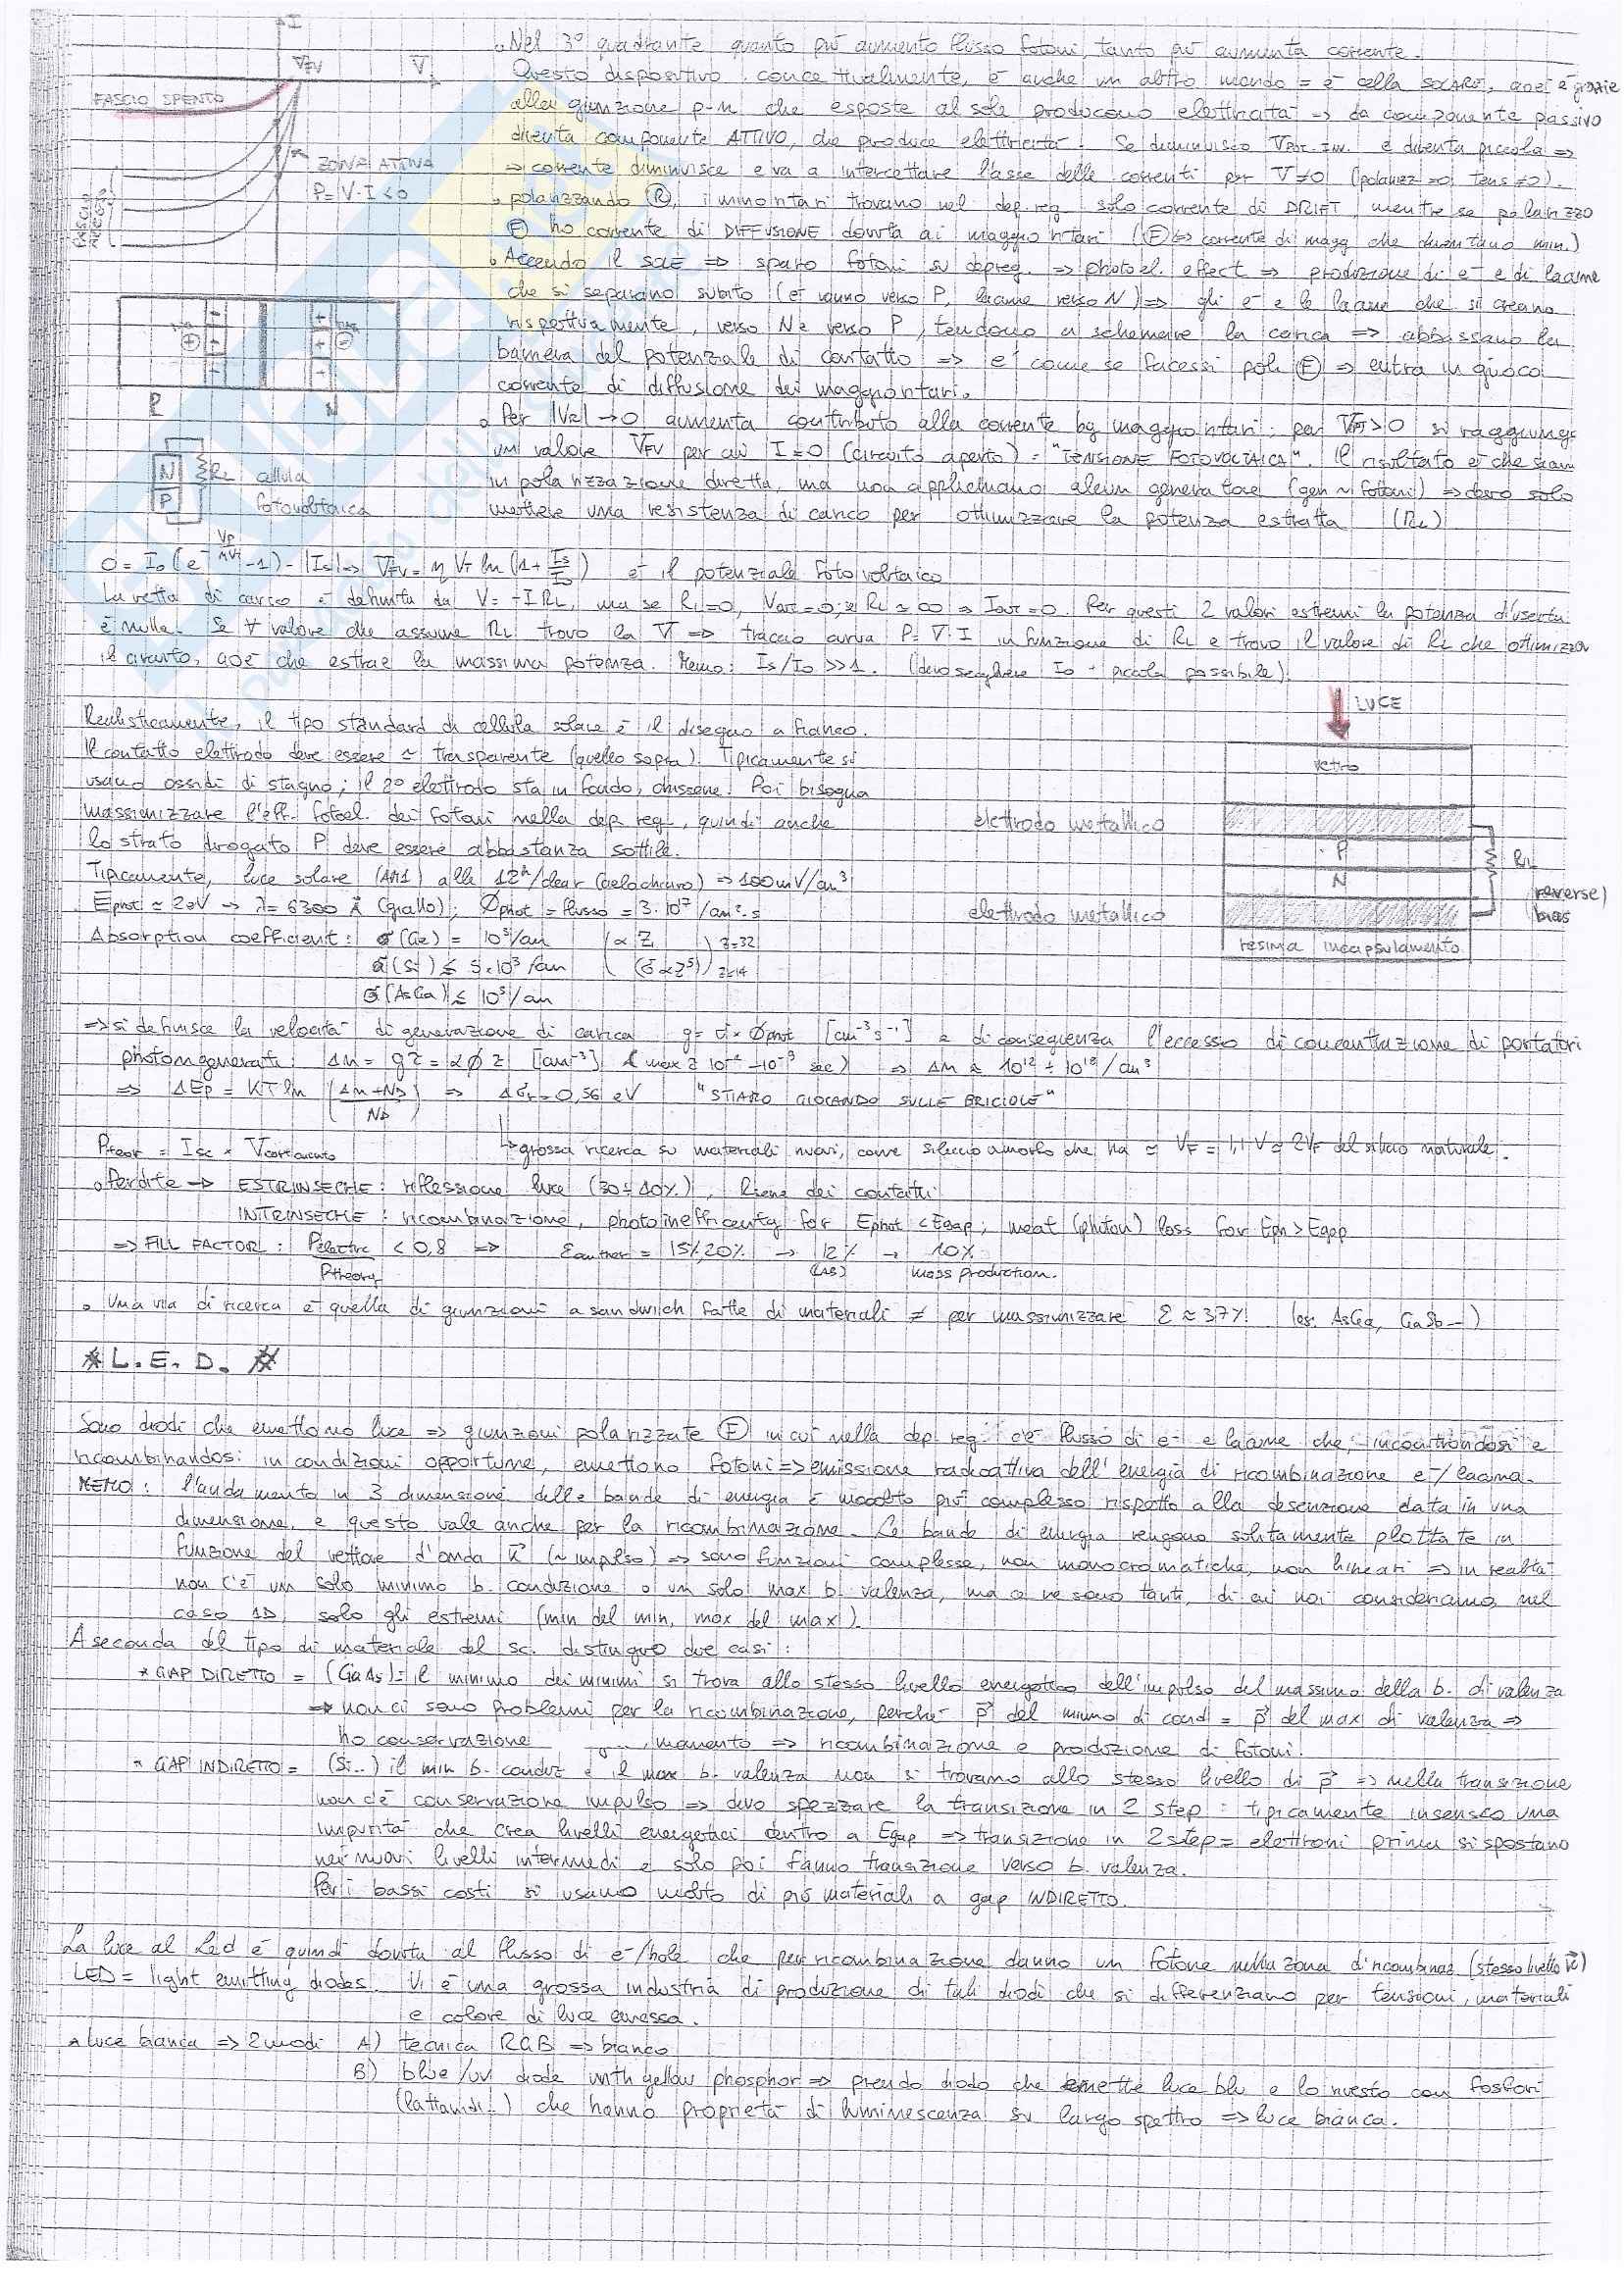 I
V_FV V
FASCIO SPENTO
ZONA ATTIVA
P=V·I<0
• Nel 3° quadrante quanto più aumento flusso fotoni, tanto più aumenta corrente.
Questo dispositivo, concettualmente, è anche un altro mondo = è cella SOLARE, cioè è grazie
alla giunzione p-n che esposte al sole producono elettricità => da componente passivo
diventa componente ATTIVO, che produce elettricità! Se diminuisco e diventa piccola =>
=> corrente diminuisce e va a intercettare l'asse delle correnti per V≠0 (polarizz=0, tens≠0).
• polarizzando (R), i minoritari trovano nel dep.reg. solo corrente di DRIFT, mentre se polarizzo
(F) ho corrente di DIFFUSIONE dovuta ai maggioritari (F => corrente di magg che diventano min.)
• Accendo il sole => sparo fotoni su depreg. => photoel. effect => produzione di e- e di lacune
che si separano subito (e- vanno verso P, lacune verso N) => gli e- e le lacune che si creano
rispettivamente, verso N e verso P, tendono a schermare la carica => abbassano la
barriera del potenziale di contatto => è come se facessi pol. (F) => entra in gioco
corrente di diffusione dei maggioritari.
P N
• Per |V_R| → 0 aumenta contributo alla corrente by maggioritari; per > 0 si raggiunge
un valore V_FV per cui I=0 (circuito aperto) = "TENSIONE FOTOVOLTAICA". Il risultato è che siamo
in polarizzazione diretta, ma non applichiamo alcun generatore (gen ~ fotoni) => devo solo
mettere una resistenza di carico per ottimizzare la potenza estratta (R_L)
N
P
R_L cellula
fotovoltaica
0 = I_0 (e^{V_P/ηV_T} -1) - |I_S| => V_FV = η V_T ln (1+ I_S/I_0) è il potenziale fotovoltaico
La retta di carico è definita da V = -I R_L, ma se R_L=0, V_OUT=0; se R_L = ∞ => I_OUT=0. Per questi 2 valori estremi la potenza d'uscita
è nulla. Se ∀ valore che assume R_L trovo la V => traccio curva P=V·I in funzione di R_L e trovo il valore di R_L che ottimizza
il circuito, cioè che estrae la massima potenza. Memo: I_S/I_0 >> 1. (devo scegliere I_0 + piccola possibile)
Realisticamente, il tipo standard di cellula solare è il disegno a fianco.
Il contatto elettrodo deve essere ≃ trasparente (quello sopra). Tipicamente si
usano ossidi di stagno; il 2° elettrodo sta in fondo, Poi bisogna
massimizzare l'eff. fotoel. dei fotoni nella dep reg, quindi anche
lo strato drogato P deve essere abbastanza sottile.
LUCE
vetro
elettrodo metallico
P
N
R_L
(reverse)
bias
elettrodo metallico
resina incapsulamento
Tipicamente, luce solare (AM1) alle 12h/clear (cielo chiaro) => 100mV/cm³
E_phot ≃ 2eV → λ = 6300 Å (giallo); Φ_phot = flusso = 3·10^17/cm²·s
Absorption coefficient: σ(Ge) = 10^5/cm (∝ Z ) Z=32
σ(Si) ≤ 5·10³/cm (σ∝Z^5) Z=14
σ(AsGa) ≤ 10^5/cm
=> si definisce la velocità di generazione di carica g = σ × Φ_phot [cm^-3 s^-1] e di conseguenza l'eccesso di concentrazione di portatori
photongenerati Δn = gτ = αΦτ [cm^-3] => Δn ≈ 10^12 ÷ /cm³
=> ΔE_p = KT ln (Δn+N_D / N_D) => = 0,56 eV "STIAMO GIOCANDO SULLE BRICIOLE"
P_teor = I_sc × V_contatto ↳ grossa ricerca su materiali nuovi, come silicio amorfo che ha ≃ V_F = 1,1 V ≃ 2V_F del silicio naturale.
• Perdite → ESTRINSECHE: riflessione luce (30÷40%), dei contatti
INTRINSECHE: ricombinazione, photoinefficienty for Ephot < Egap; meat (photon) loss for Eph > Egap
=> FILL FACTOR: Pelectric / Ptheory < 0,8 => = 15%, 20% → 12% (LAB) → 10% mass production.
• Una via di ricerca è quella di giunzioni a sandwich fatte di materiali ≠ per massimizzare ε ≈ 37%! (es. AsGa, GaSb...)
* L.E.D. *
Sono diodi che emettono luce => giunzioni polarizzate (F) in cui nella dep reg. c'è flusso di e- e lacune che, incontrandosi e
ricombinandosi in condizioni opportune, emettono fotoni => emissione radioattiva dell'energia di ricombinazione e-/lacuna.
MEMO: l'andamento in 3 dimensione delle bande di energia è molto più complesso rispetto alla descrizione data in una
dimensione, e questo vale anche per la ricombinazione. Le bande di energia vengono solitamente plottate in
funzione del vettore d'onda K (~ impulso) => sono funzioni complesse, non monocromatiche, non lineari => in realtà
non c'è un solo minimo b. conduzione o un solo max b. valenza, ma ce ne sono tanti, di cui noi consideriamo, nel
caso 1D, solo gli estremi (min del min, max del max).
A seconda del tipo di materiale del sc. distinguo due casi:
* GAP DIRETTO = (GaAs) = il minimo dei minimi si trova allo stesso livello energetico dell'impulso del massimo della b. di valenza
=> non ci sono problemi per la ricombinazione, perché p del minimo di cond = p del max di valenza =>
ho conservazione momento => ricombinazione e produzione di fotoni!
* GAP INDIRETTO = (Si..) il min b. conduz e il max b. valenza non si trovano allo stesso livello di p => nella transizione
non c'è conservazione impulso => devo spezzare la transizione in 2 step: tipicamente inserisco una
impurità che crea livelli energetici dentro a Egap => transizione in 2 step = elettroni prima si spostano
nei nuovi livelli intermedi e solo poi fanno transizione verso b. valenza.
Per i bassi costi si usano molto di più materiali a gap INDIRETTO.
La luce al Led è quindi dovuta al flusso di e-/hole che per ricombinazione danno un fotone nella zona di ricombinaz (stesso livello K)
LED = light emitting diodes. Vi è una grossa industria di produzione di tali diodi che si differenziano per tensioni, materiali
e colore di luce emessa.
* luce bianca => 2 modi A) tecnica RGB => bianco
B) blue/uv diode with yellow phosphor => prendo diodo che emette luce blu e lo rivesto con fosfori
(lattanidi!) che hanno proprietà di luminescenza su largo spettro => luce bianca.